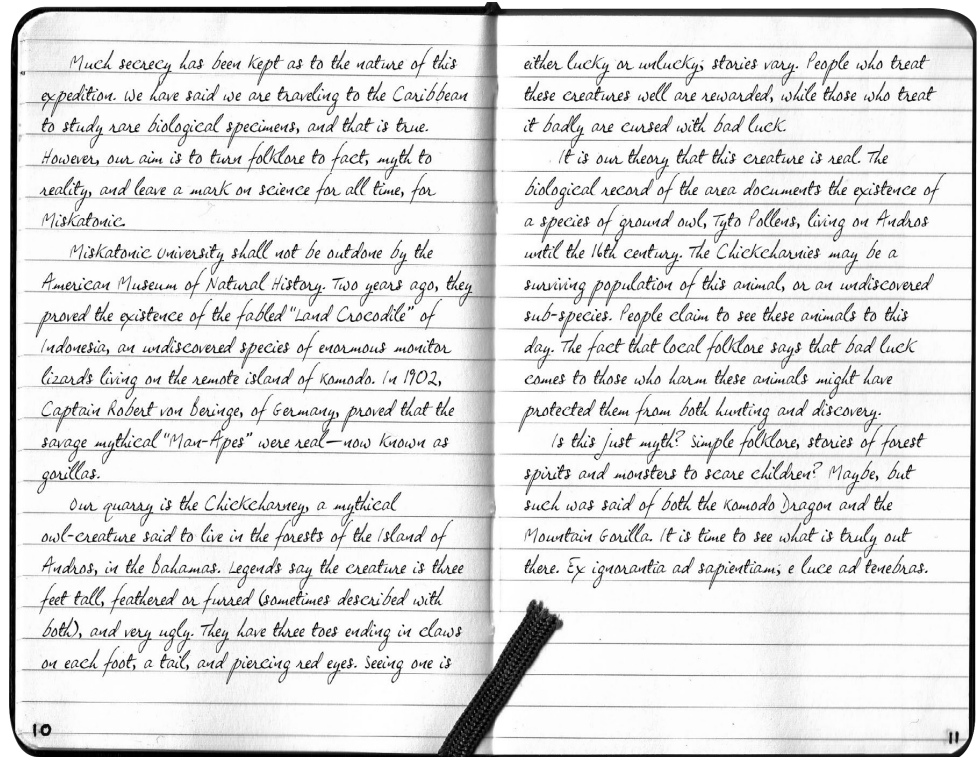 Much secrecy has been kept as to the nature of this
expedition. We have said we are traveling to the Caribbean
to study rare biological specimens, and that is true.
However, our aim is to turn folklore to fact, myth to
reality, and leave a mark on science for all time, for
Miskatonic.
Miskatonic University shall not be outdone by the
American Museum of Natural History. Two years ago, they
proved the existence of the fabled "Land Crocodile" of
Indonesia, an undiscovered species of enormous monitor
lizards living on the remote island of Komodo. In 1902,
Captain Robert von Beringe, of Germany, proved that the
savage mythical "Man-Apes" were real—now known as
gorillas.
Our quarry is the Chickcharney, a mythical
owl-creature said to live in the forests of the Island of
Andros, in the Bahamas. Legends say the creature is three
feet tall, feathered or furred (sometimes described with
both), and very ugly. They have three toes ending in claws
on each foot, a tail, and piercing red eyes. Seeing one is
10
either lucky or unlucky; stories vary. People who treat
these creatures well are rewarded, while those who treat
it badly are cursed with bad luck.
It is our theory that this creature is real. The
biological record of the area documents the existence of
a species of ground owl, Tyto Pollens, living on Andros
until the 16th century. The Chickcharnies may be a
surviving population of this animal, or an undiscovered
sub-species. People claim to see these animals to this
day. The fact that local folklore says that bad luck
comes to those who harm these animals might have
protected them from both hunting and discovery.
Is this just myth? Simple folklore, stories of forest
spirits and monsters to scare children? Maybe, but
such was said of both the Komodo Dragon and the
Mountain Gorilla. It is time to see what is truly out
there. Ex ignorantia ad sapientiam; e luce ad tenebras.
11